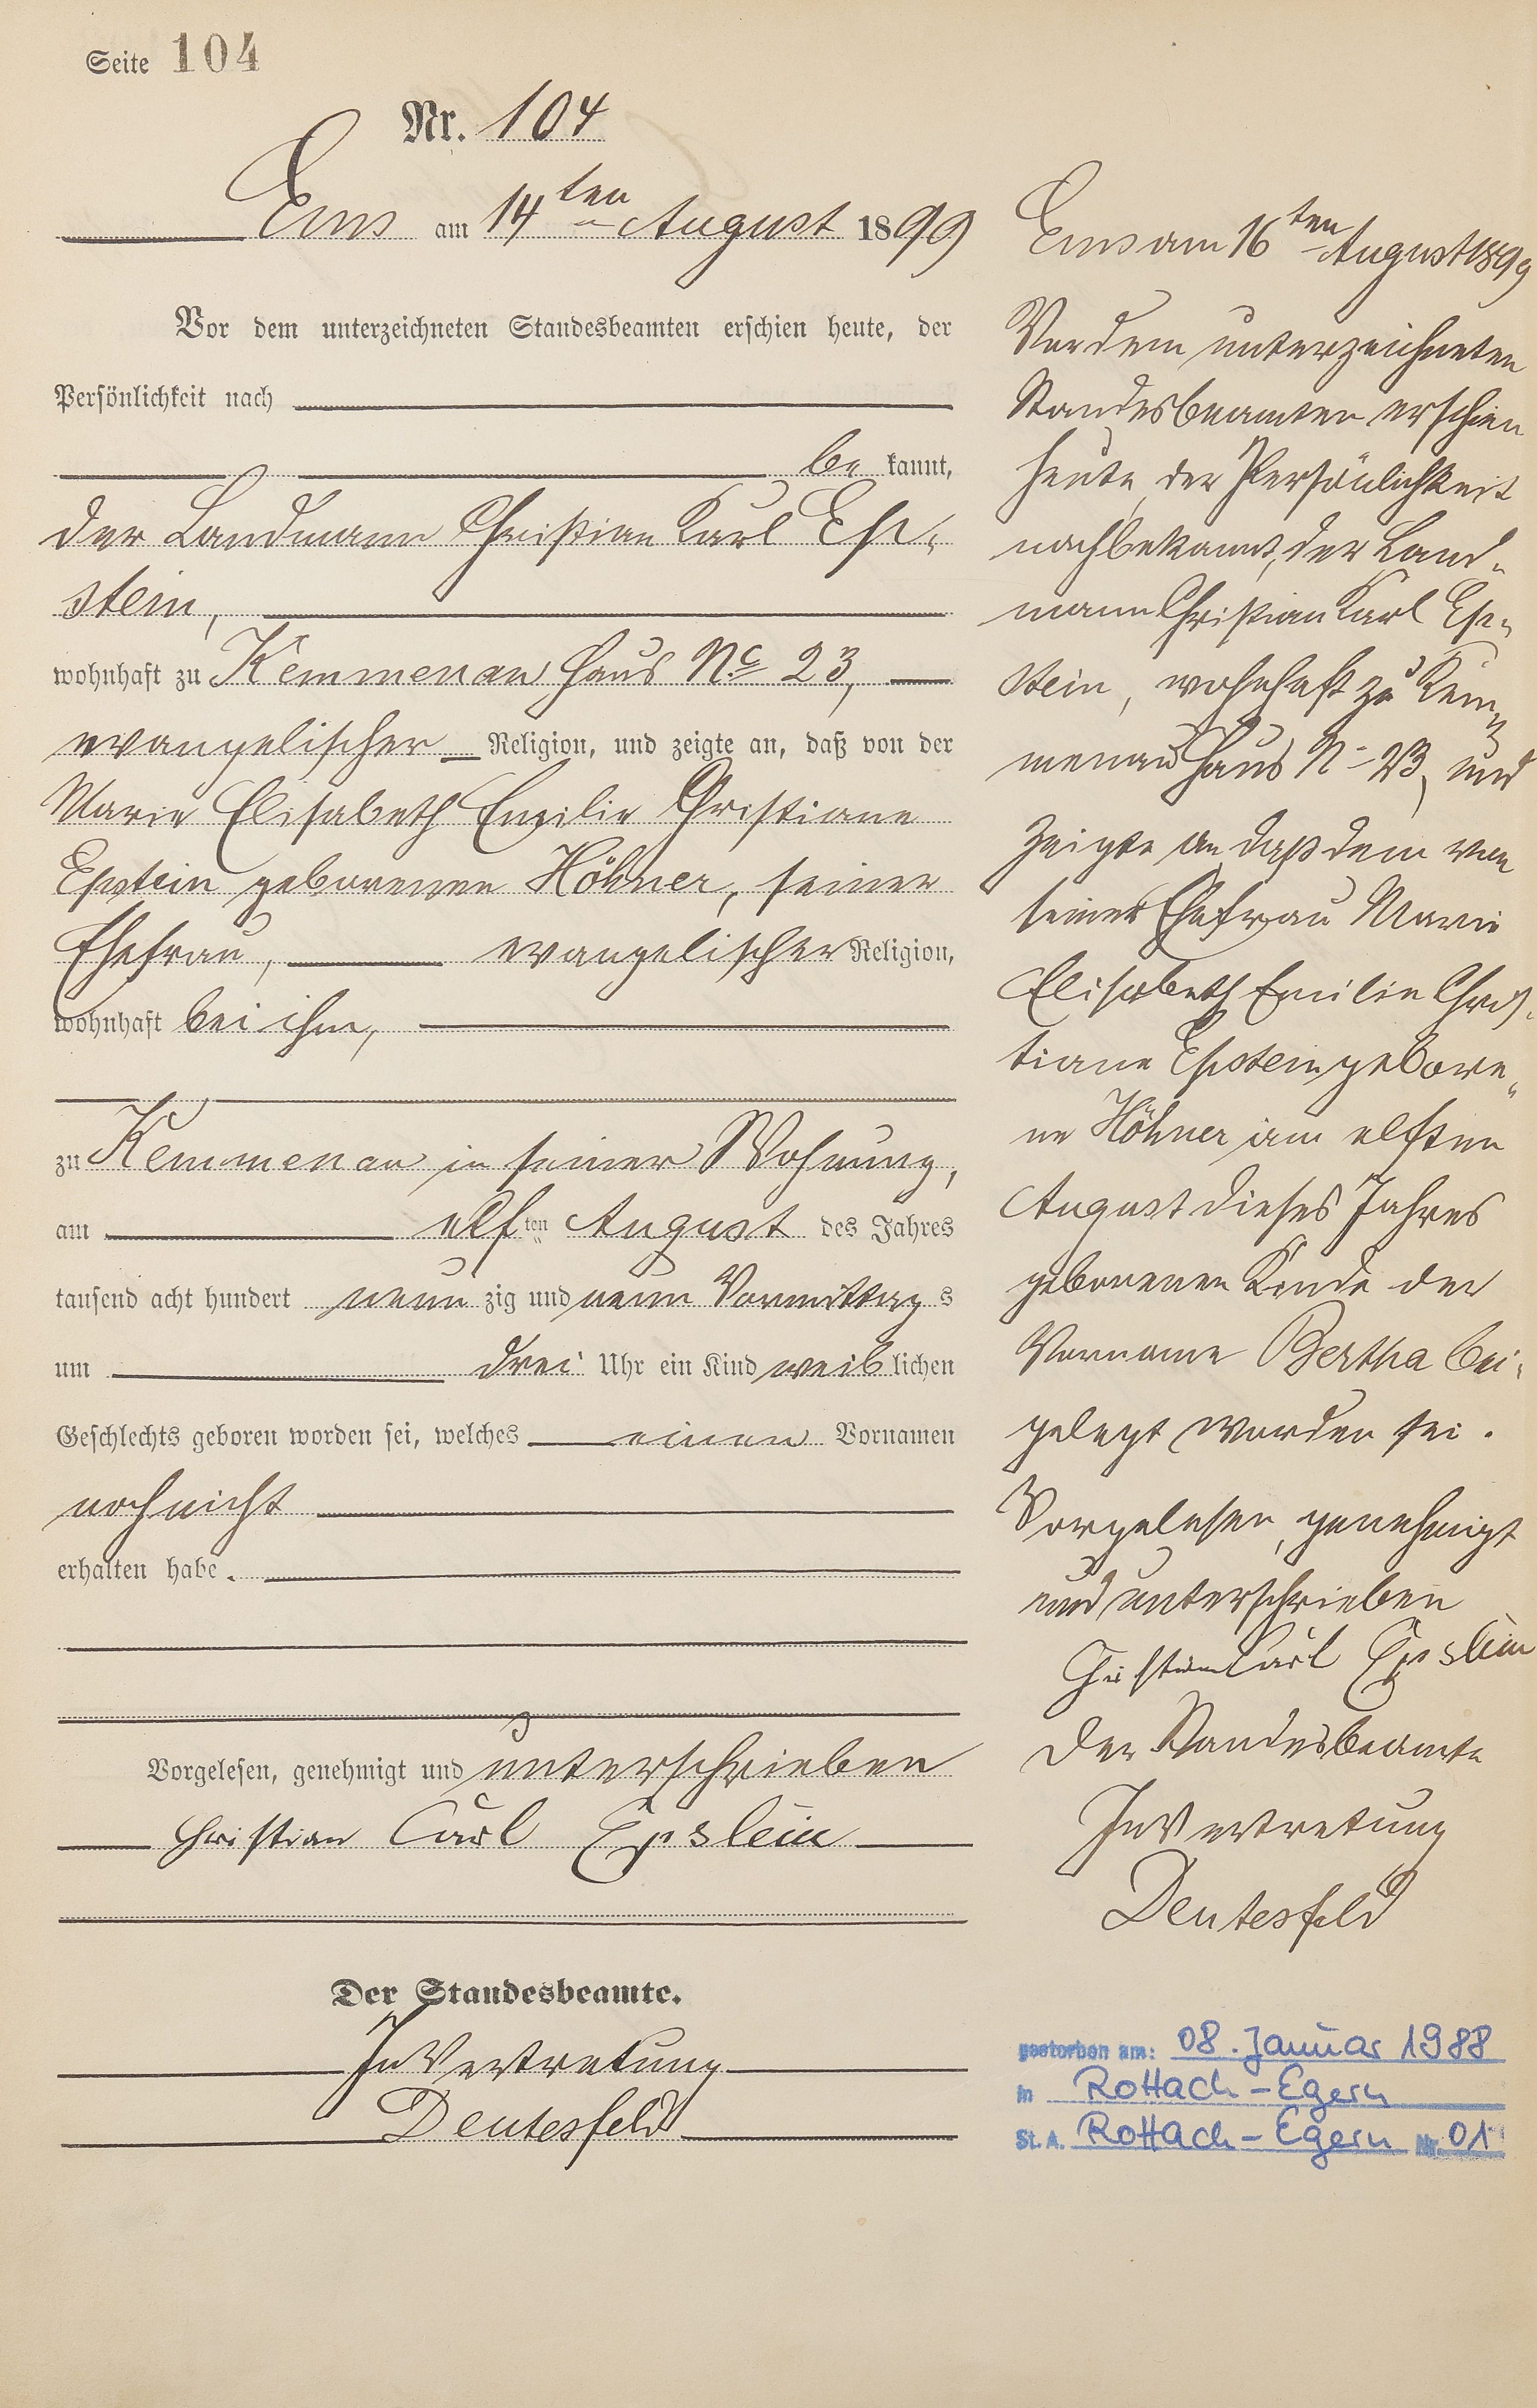 Seite 104
Nr. 104
Ems am 14ten August 1899
Vor dem unterzeichneten Standesbeamten erschien heute, der
Persönlichkeit nach
be kannt,
der Landmann Christian Karl Ep-
stein,
wohnhaft zu Kemmenau Haus No 23,
evangelischer Religion, und zeigte an, daß von der
Marie Elisabeth Emilie Christiane
Epstein geborenen Höhner, seiner
Ehefrau, evangelischer Religion,
wohnhaft bei ihm,
zu Kemmenau in seiner Wohnung,
am elf ten August des Jahres
tausend acht hundert neun zig und neun Vormittag s
um drei Uhr ein Kind weib lichen
Geschlechts geboren worden sei, welches einen Vornamen
noch nicht
erhalten habe.
Vorgelesen, genehmigt und unterschrieben
Christian Carl Epstein
Der Standesbeamte.
In Vertretung
Deutesfeld
Ems am 16ten August 1899
Vor dem unterzeichneten
Standesbeamten erschien
heute, der Persönlichkeit
nach bekannt, der Land-
mann Christian Karl Ep-
stein, wohnhaft zu Kem-
menau Haus N- 23, und
zeigte an, daß dem von
seiner Ehefrau Marie
Elisabeth Emilie Chris-
tiane Epstein gebore-
ne Höhner am elften
August dieses Jahres
geborenen Kinde der
Vorname Bertha bei-
gelegt worden sei.
Vorgelesen, genehmigt
und unterschrieben
Christian Carl Epstein
Der Standesbeamte
In Vertretung
Deutesfeld
gestorben am: 08. Januar 1988
in Rottach-Egern
St. A. Rottach-Egern Nr. 01